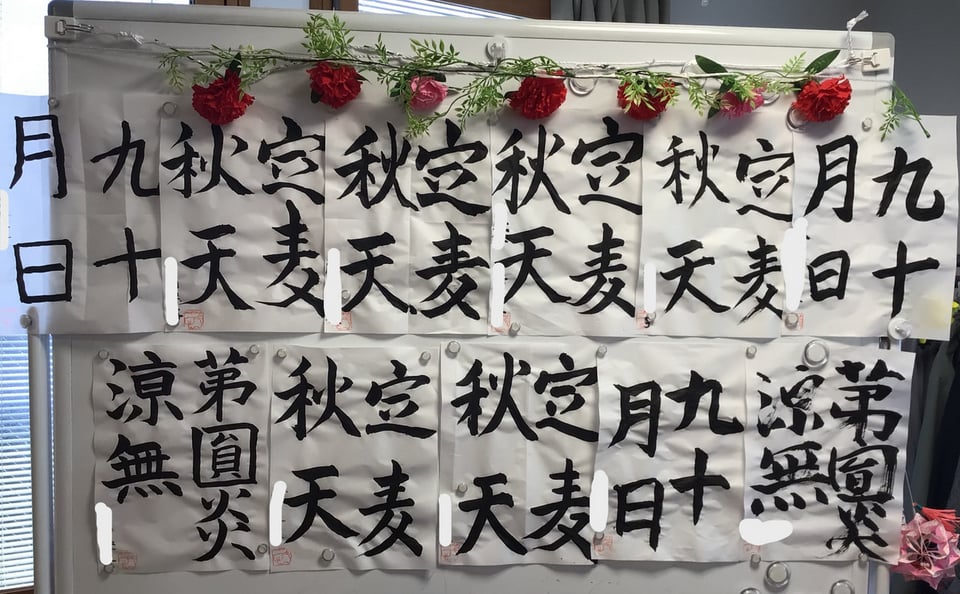 九十
月日
空麦
秋天
空麦
秋天
空麦
秋天
空麦
秋天
九十
月日
苐圓炎
涼無
九十
月日
空麦
秋天
空麦
秋天
苐圓炎
涼無